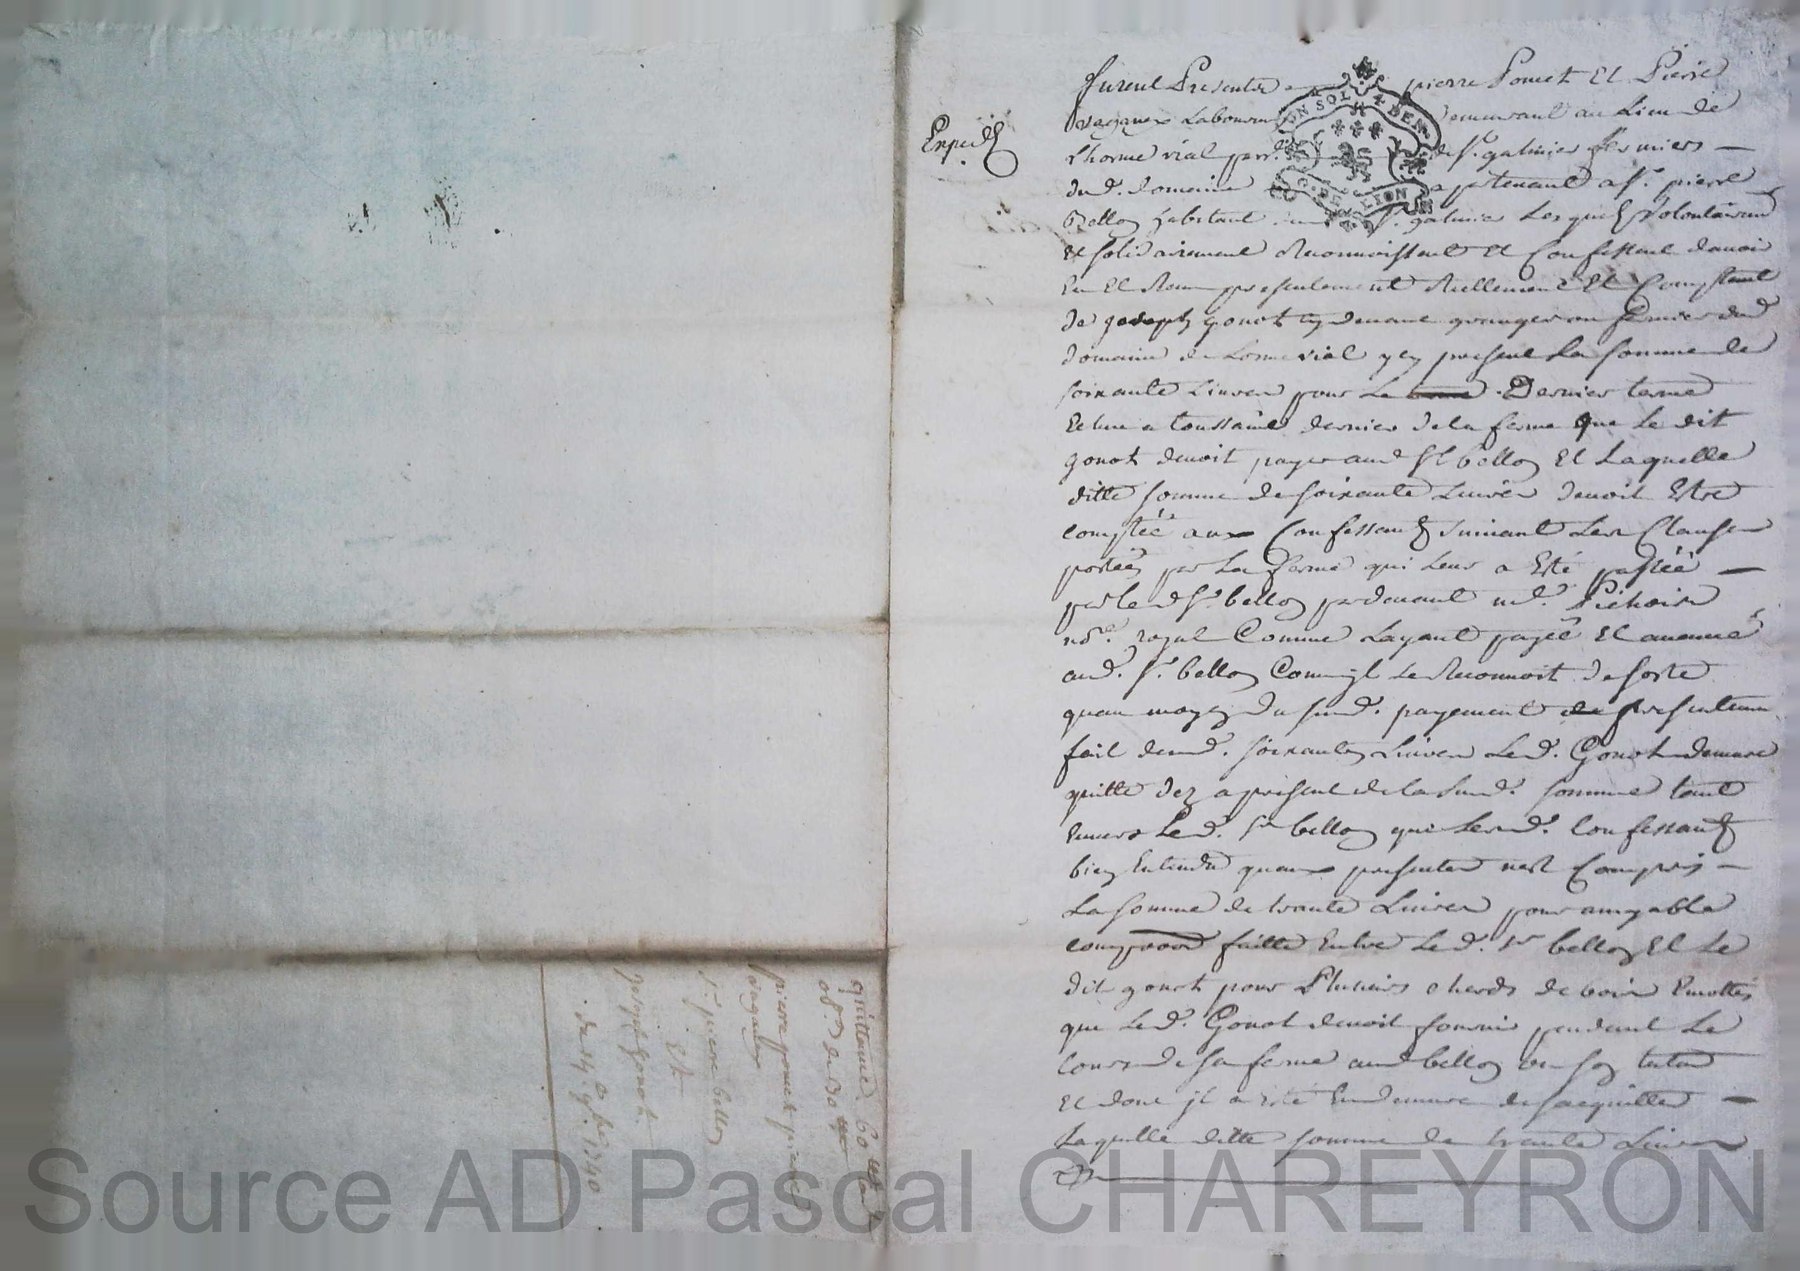 Expedié
UN SOL 4 DEN.
G. DE LION
furent Presents pierre Pomet Et Pierre
Labour demeurant au Lieu de
Lhorme vial parr. de St. galmier fermiers
du d. domaine apartenant a Sr. pierre
bellon habitant St. galmier Lesquels volontairemt
et solidairement Reconnoissent Et Confessent davoir
Eu Et Receu presentement Reellement Et Comptant
de joseph gonot cy devant granger ou fermier dud
domaine de Lorme vial y cy present La somme de
soixante Livres pour Le Dernier terme
Echeu a toussaint dernier de la ferme que Le dit
gonot devoit payer aud Sr bellon Et Laquelle
ditte somme de soixante Livres devoit Estre
comptée aux Confessants suivant Les Clauses
portées par La ferme qui Leur a Esté passée
par led Sr. bellon pardevant me.
nore. royal Comme Layant payée Et
aud. Sr. bellon Comme jl Le Reconnoit de sorte
quau moyen du susd. payement presentement
fait desd. soixante Livres Led. Gonot demeure
quitte dez a present de la susd. somme tant
Envers Led. Sr bellon que Lesd. Confessants
bien Entendu quaux presentes nest Compris
La somme de trante Livres pour amyable
faitte Entre Led. Sr bellon Et Le
dit gonot pour Plusieurs chards de bois
que Led. Gonot devoit fournir pendant Le
Cours de sa ferme aud bellon
Et dont jl a Esté En demeure de sacquitter
Laquelle ditte somme de trante Livres
quittance 60
de 30
pierre pomet pierre
Sr. pierre bellon
Et
joseph gonot
du 14. 1740
Source AD Pascal CHAREYRON